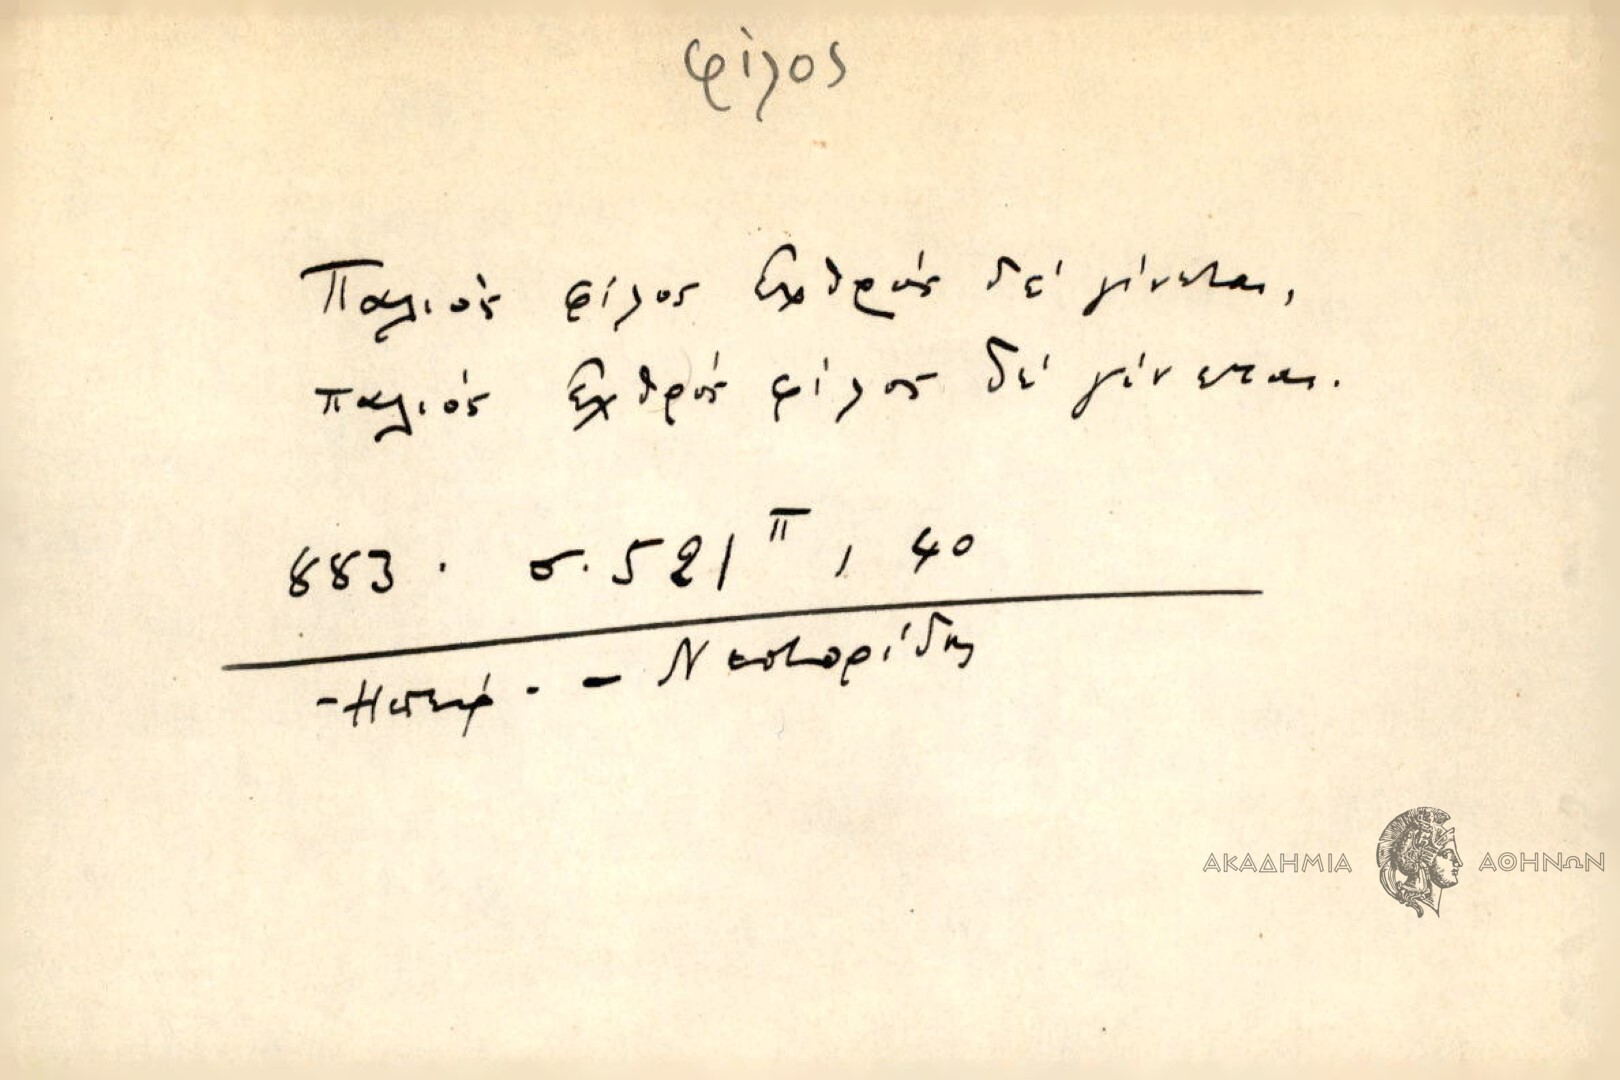 φίλος
Παλιός φίλος εχθρός δέ γίνεται,
παλιός εχθρός φίλος δέ γίνεται.
883. σ. 521 II, 40
- Ηπειρ. - Νεστορίδης
ΑΚΑΔΗΜΙΑ ΑΘΗΝΩΝ